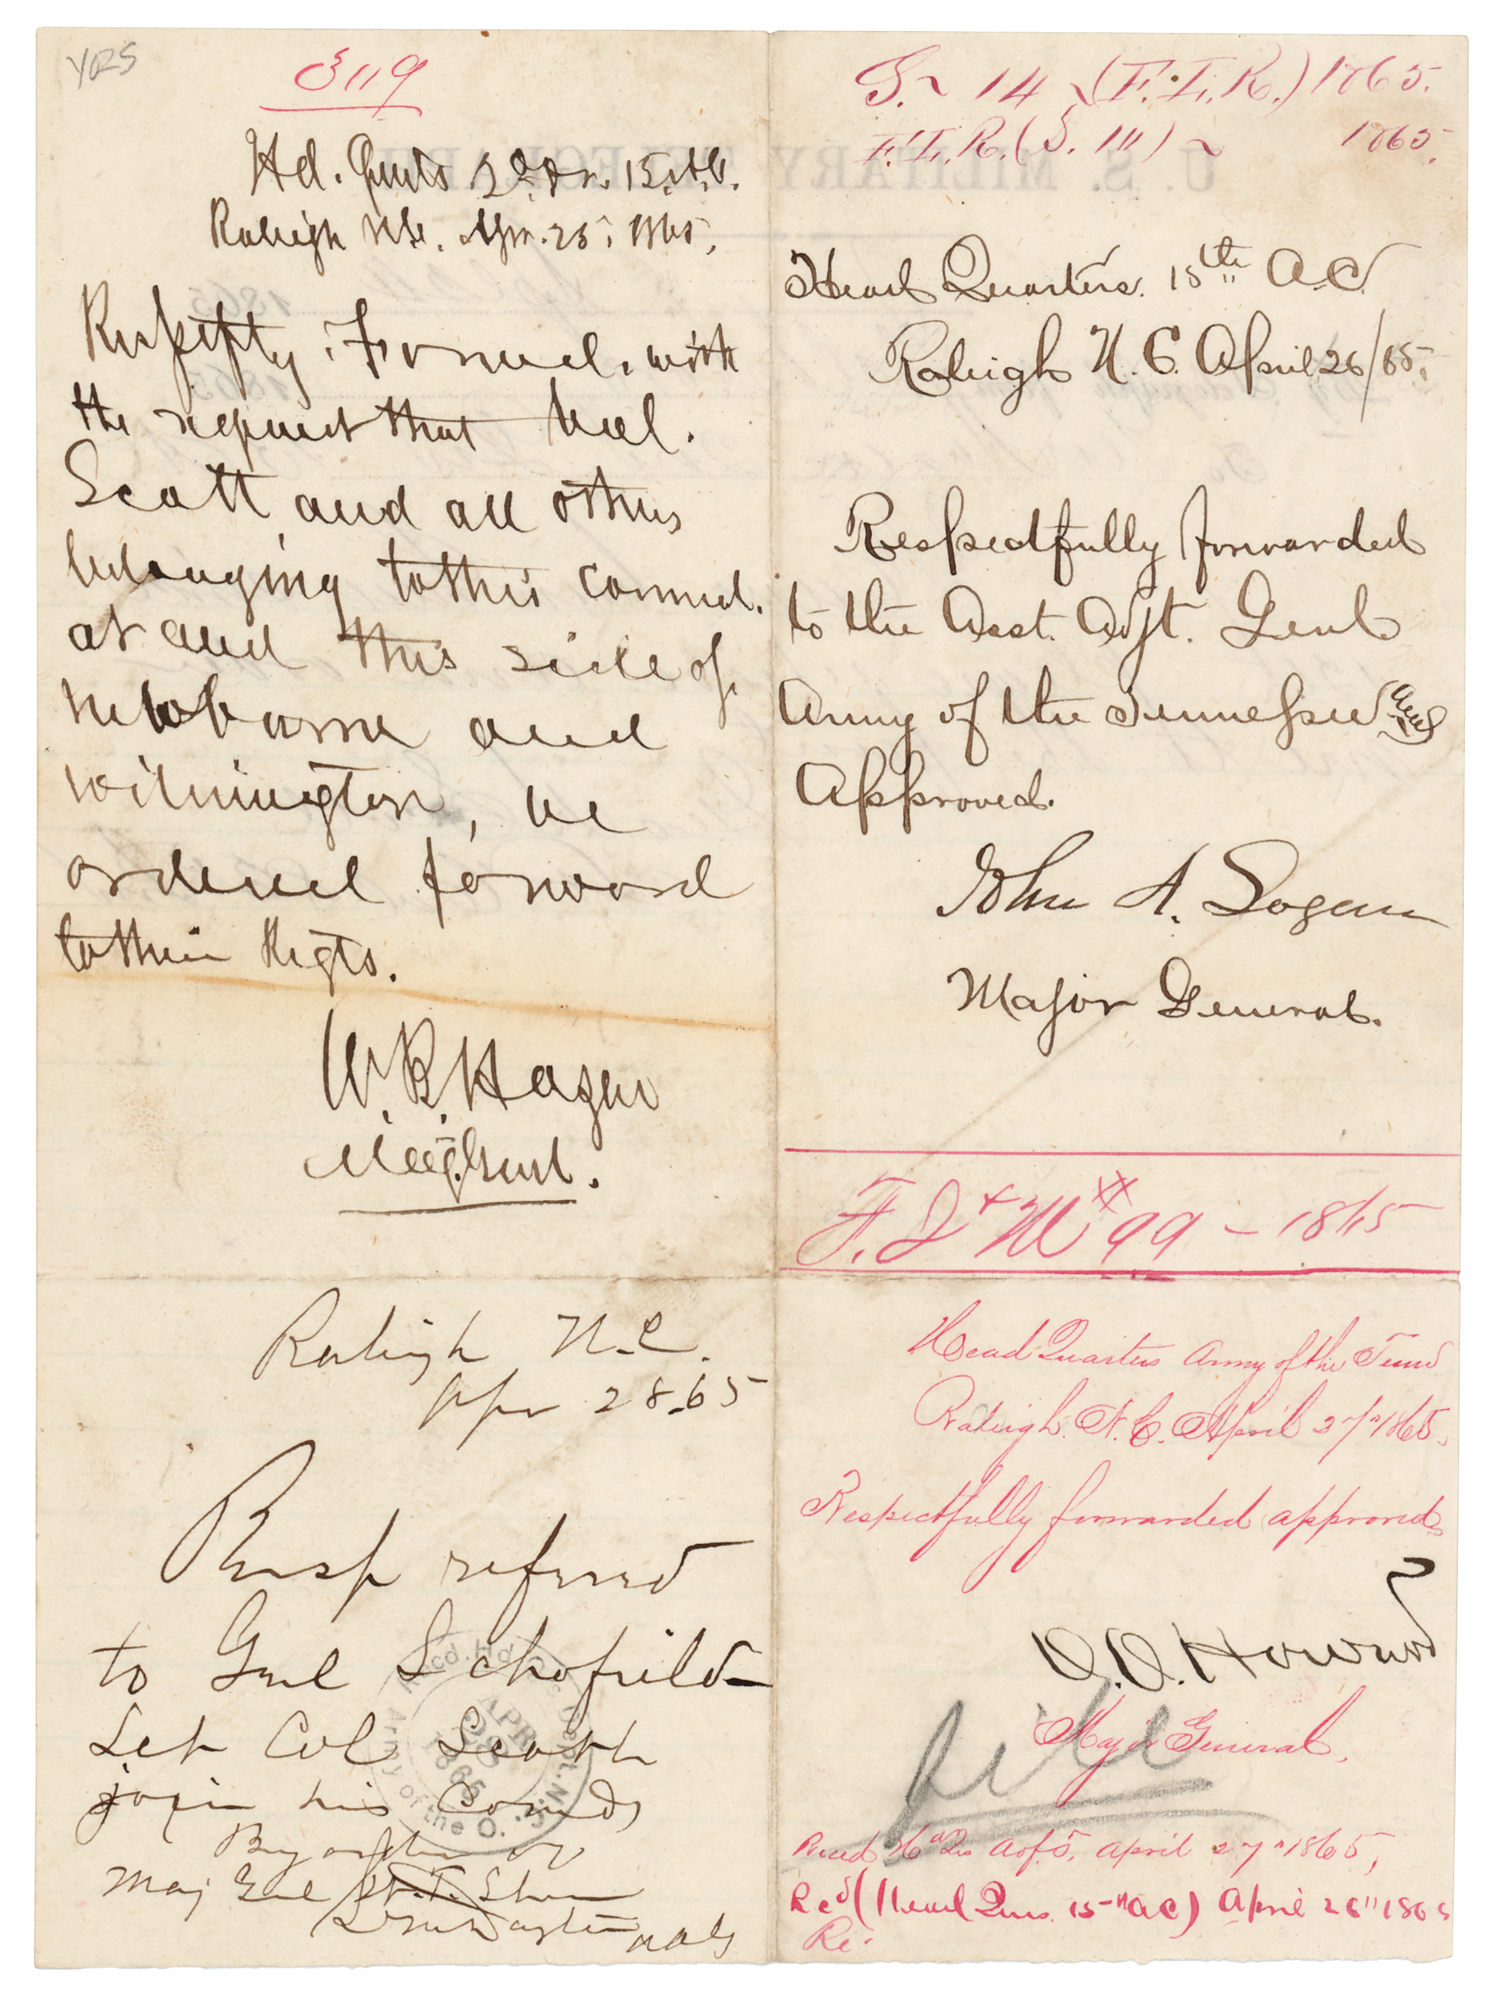 YRS
S119
Hd. Qurts 2d Dn. 15. A.C.
Raleigh N.C. Apr. 25, 1865,
Respctfly. Forwd. with
the request that Col.
Scott and all others
belonging to this comnd.
at and this side of
Newborne and
Wilmington, be
ordered forward
to their Regts.
W. B. Hazen
Maj. Genl.
Raleigh N.C.
Apr 28.65
Resp referred
to Genl Schofield
Let Col Scott
join his Comd
By order of
Maj Genl W. T. Sherman
AAG
Recd. Hd. Qrs. Dept. N.C.
APR 28 1865
Army of the O.
S. ~ 14 ~ (F. I. R.) 1865.
F. I. R. (S. 111) ~ 1865.
U. S. MILITARY
1865
1865
Head Quarters. 15th A.C.
Raleigh N. C. April 26/65,
Respectfully forwarded
to the Asst. Adjt. Genl
Army of the Tennessee and
Approved.
John A. Logan
Major General.
F. D & M # 99 – 1865
Head Quarters Army of the Tenn
Raleigh. N. C. April 27" 1865.
Respectfully forwarded approved
O. O. Howard
Major General,
file
Recd Hd Qrs A of T, April 27" 1865,
Recd (Head Qurs. 15" AC) April 26" 1865